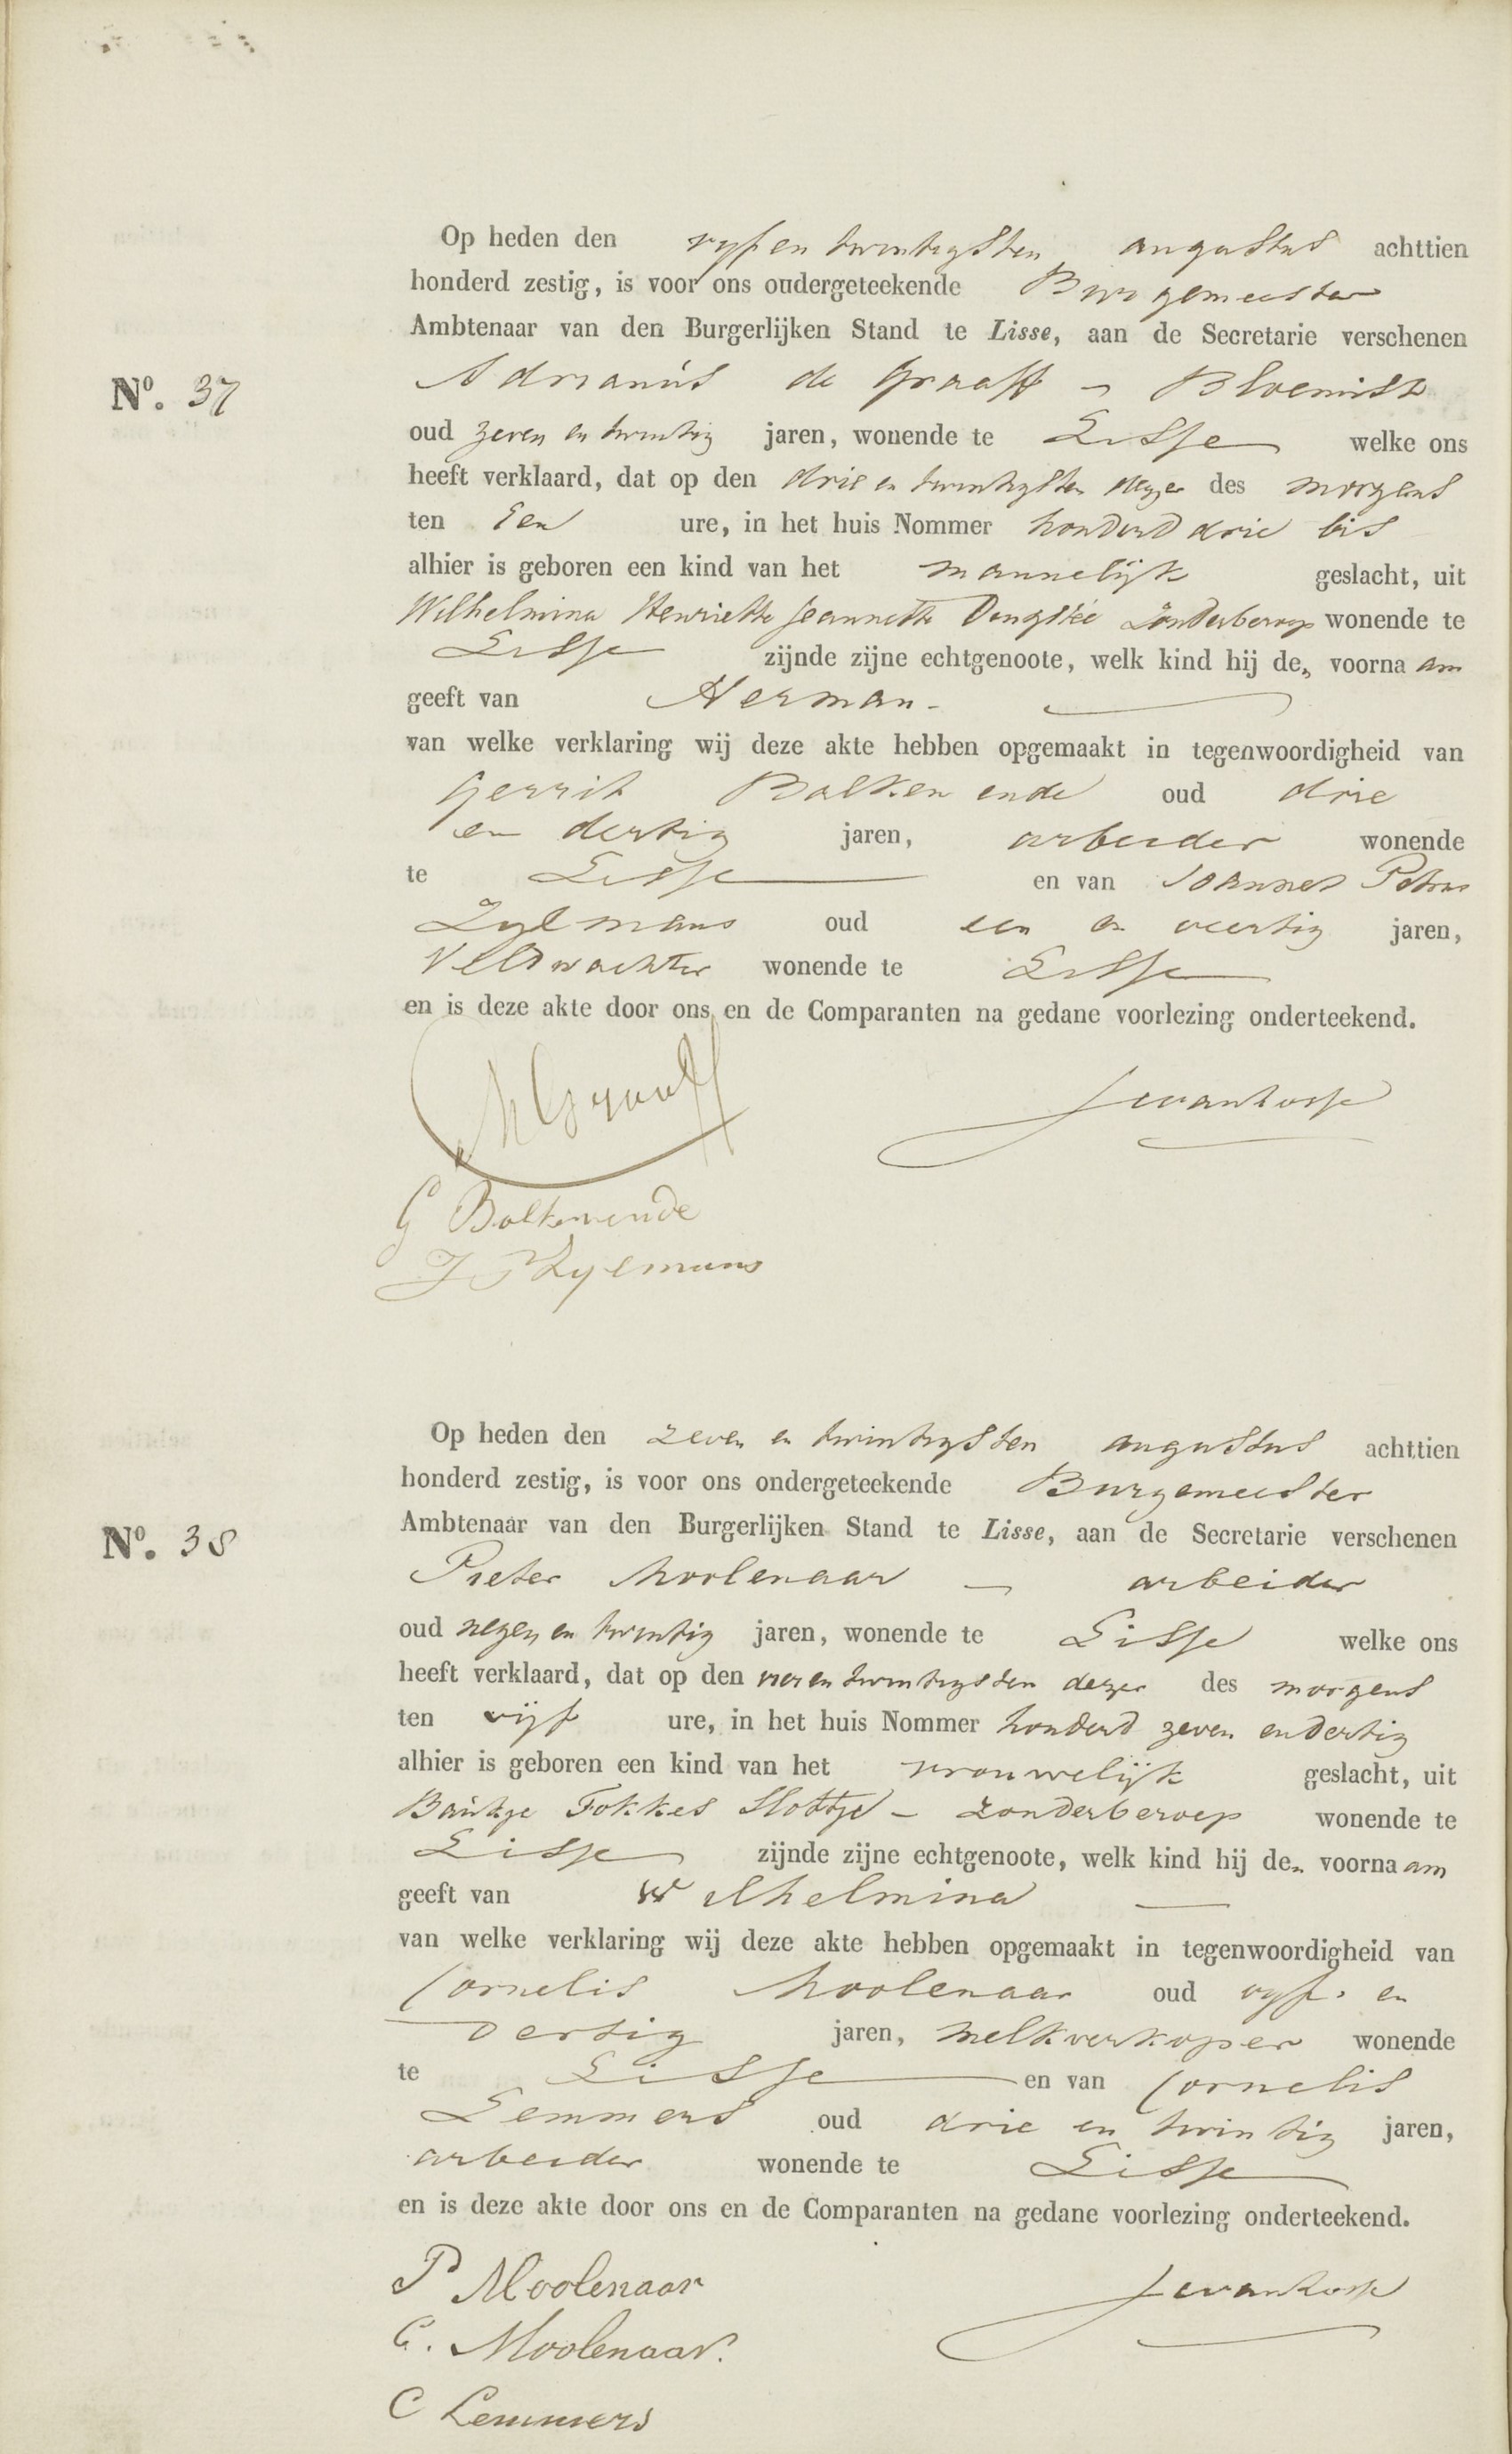 Op heden den vyf en twintigsten augustus achttien
honderd zestig, is voor ons ondergeteekende Burgemeester
Ambtenaar van den Burgerlijken Stand te Lisse, aan de Secretarie verschenen
No. 37
Adrianus de Graaff - Bloemist
oud zeven en twintig jaren, wonende te Lisse welke ons
heeft verklaard, dat op den drie en twintigsten dezer des morgens
ten een ure, in het huis Nommer honderd drie bis
alhier is geboren een kind van het mannelijk geslacht, uit
Wilhelmina Henriette Jeannette zonder beroep wonende te
Lisse zijnde zijne echtgenoote, welk kind hij den voornaam
geeft van Herman -
van welke verklaring wij deze akte hebben opgemaakt in tegenwoordigheid van
Gerrit Balkenende oud drie
en dertig jaren, arbeider wonende
te Lisse en van Joannes Petrus
Zylmans oud een en veertig jaren,
Veldwachter wonende te Lisse
en is deze akte door ons en de Comparanten na gedane voorlezing onderteekend.
G Balkenende
J P Zylmans
Op heden den zeven en twintigsten augustus achttien
honderd zestig, is voor ons ondergeteekende Burgemeester
Ambtenaar van den Burgerlijken Stand te Lisse, aan de Secretarie verschenen
No. 38
Pieter Moolenaar - arbeider
oud negen en twintig jaren, wonende te Lisse welke ons
heeft verklaard, dat op den vier en twintigsten dezer des morgens
ten vijf ure, in het huis Nommer honderd zeven en dertig
alhier is geboren een kind van het vrouwelijk geslacht, uit
Baukje Fokkes Slottje - zonder beroep wonende te
Lisse zijnde zijne echtgenoote, welk kind hij den voornaam
geeft van Wilhelmina
van welke verklaring wij deze akte hebben opgemaakt in tegenwoordigheid van
Cornelis Moolenaar oud vyf en
dertig jaren, melkverkoper wonende
te Lisse en van Cornelis
Lemmers oud drie en twintig jaren,
arbeider wonende te Lisse
en is deze akte door ons en de Comparanten na gedane voorlezing onderteekend.
P Moolenaar
C. Moolenaar.
C Lemmers